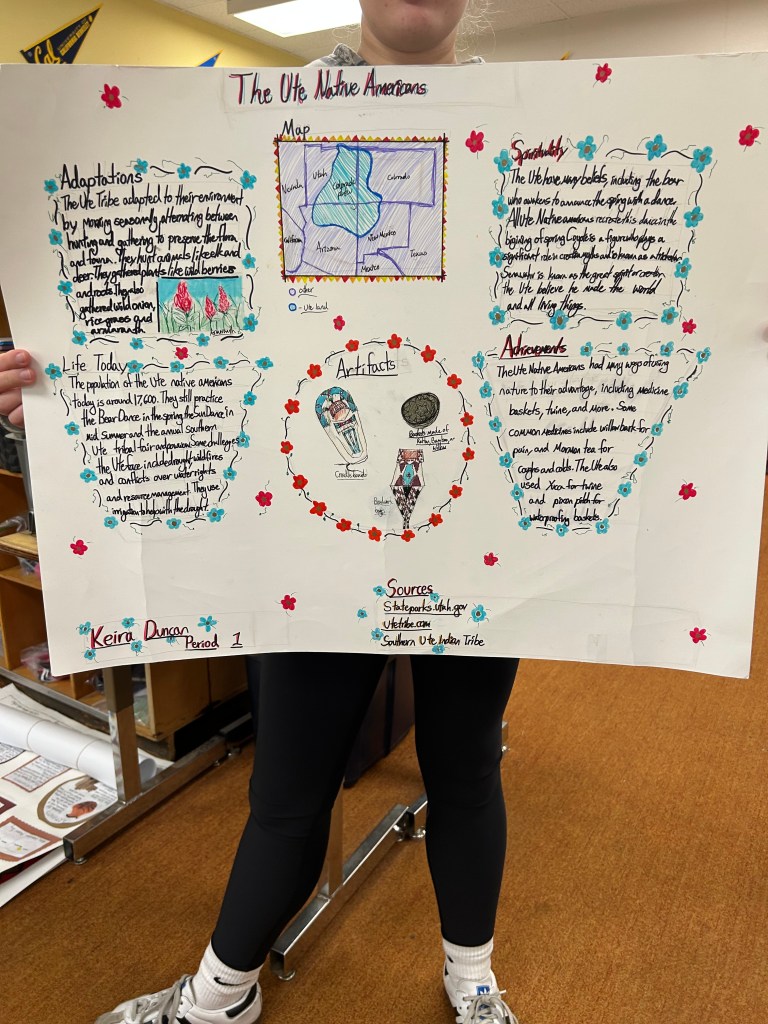 Cal
The Ute Native Americans
Adaptations
The Ute Tribe adapted to their environment
by moving seasonally, alternating between
hunting and gathering to preserve the flora
and fauna. They hunt animals like elk and
deer. They gathered plants like wild berries
and roots. They also
gathered wild onion,
rice grass and
Map
Nevada
Utah
Colorado
Colorado
California
Arizona
New Mexico
Mexico
Texas
other
- Ute land
Spirituality
The Ute have many beliefs, including the bear
who awakens to announce the spring with a dance.
All Ute Native americans recreate this dance in the
begining of spring. Coyote is a figure who plays a
significant role in creation myths and is known as a trickster.
is known as the great spirit or creator
the Ute believe he made the world
and all living things.
Life Today
The population of the Ute native americans
today is around 17,600. They still practice
The Bear Dance in the spring, the Sun Dance in
mid Summer and the annual Southern
Ute tribal fair and powwow. Some challenges
the Ute face include drought, wildfires
and conflicts over water rights
and resource management. They use
irrigation to help with the drought.
Artifacts
Cradleboard
Baskets made of
Willow
Achievements
The Ute Native Americans had many ways of using
nature to their advantage, including medicine
baskets, twine, and more. Some
common medicines include willow bark for
pain, and Mormon tea for
coughs and colds. The Ute also
used Yucca for twine
and pinon pitch for
waterproofing baskets.
Sources
Stateparks.utah.gov
utetribe.com
Southern Ute Indian Tribe
Keira Duncan
Period 1